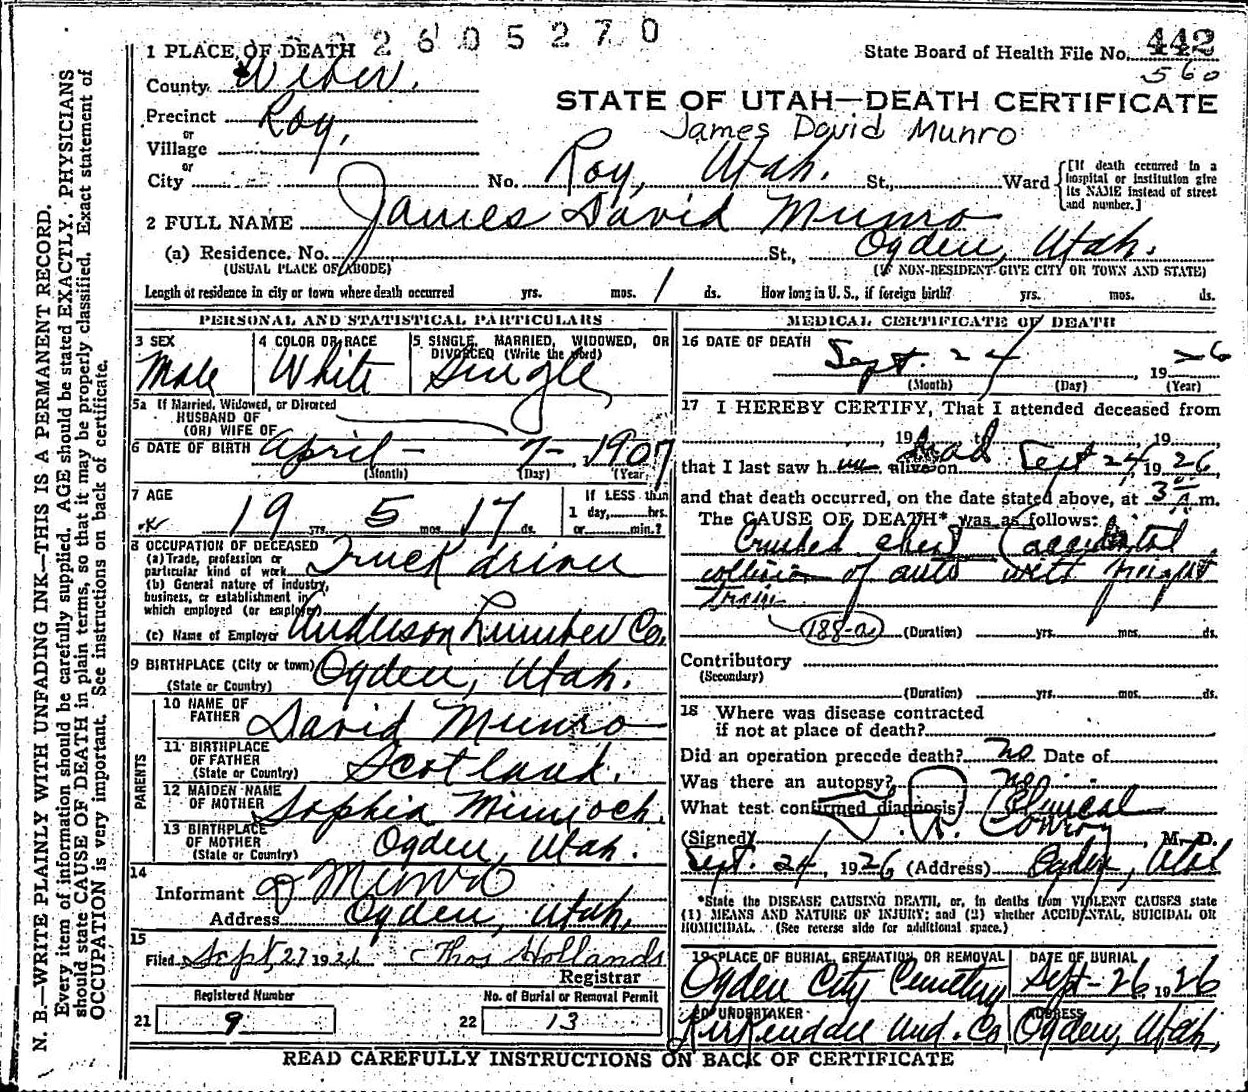 2 6 0 5 2 7 0
1 PLACE OF DEATH
State Board of Health File No. 442
560
County Weber.
STATE OF UTAH—DEATH CERTIFICATE
James David Munro
Precinct Roy,
or
Village
or
City
No. Roy, Utah. St., Ward
[If death occurred in a hospital or institution give its NAME instead of street and number.]
2 FULL NAME James David Munro
(a) Residence. No. St., Ogden, Utah.
(USUAL PLACE OF ABODE) (IF NON-RESIDENT GIVE CITY OR TOWN AND STATE)
Length of residence in city or town where death occurred yrs. mos. 1 ds. How long in U. S., if foreign birth? yrs. mos. ds.
PERSONAL AND STATISTICAL PARTICULARS
3 SEX
Male
4 COLOR OR RACE
White
5 SINGLE, MARRIED, WIDOWED, OR
DIVORCED (Write the word)
Single
5a If Married, Widowed, or Divorced
HUSBAND OF
(OR) WIFE OF
6 DATE OF BIRTH April - 7 - , 1907
(Month) (Day) (Year)
7 AGE
19 yrs. 5 mos. 17 ds.
If LESS than
1 day, hrs.
or min.?
8 OCCUPATION OF DECEASED
(a) Trade, profession or
particular kind of work Truck driver
(b) General nature of industry,
business, or establishment in
which employed (or employer)
(c) Name of Employer Anderson Lumber Co.
9 BIRTHPLACE (City or town) Ogden, Utah.
(State or Country)
PARENTS
10 NAME OF
FATHER David Munro
11 BIRTHPLACE
OF FATHER
(State or Country) Scotland.
12 MAIDEN NAME
OF MOTHER Sophia Minnoch.
13 BIRTHPLACE
OF MOTHER
(State or Country) Ogden, Utah.
14
Informant D Munro
Address Ogden, Utah.
15
Filed Sept 27 1926 Thos Hollands
Registrar
Registered Number
21 9
No. of Burial or Removal Permit
22 13
MEDICAL CERTIFICATE OF DEATH
16 DATE OF DEATH
Sept. 24 1926
(Month) (Day) (Year)
17 I HEREBY CERTIFY, That I attended deceased from
, 19 to , 19 ,
that I last saw him alive on dead Sept 24, 1926
and that death occurred, on the date stated above, at 3 A. m.
The CAUSE OF DEATH* was as follows:
Crushed chest (accidental
collision of auto with freight
train
188-a (Duration) yrs. mos. ds.
Contributory
(Secondary)
(Duration) yrs. mos. ds.
18 Where was disease contracted
if not at place of death?
Did an operation precede death? no Date of
Was there an autopsy? no
What test confirmed diagnosis? Clinical
(Signed) Conroy, M. D.
Sept. 24, 1926 (Address) Ogden, Utah
*State the DISEASE CAUSING DEATH, or, in deaths from VIOLENT CAUSES state
(1) MEANS AND NATURE OF INJURY; and (2) whether ACCIDENTAL, SUICIDAL OR
HOMICIDAL. (See reverse side for additional space.)
19 PLACE OF BURIAL, CREMATION, OR REMOVAL
Ogden City Cemetery
DATE OF BURIAL
Sept-26, 1926
20 UNDERTAKER
Kirkendall Und. Co.
ADDRESS
Ogden, Utah,
READ CAREFULLY INSTRUCTIONS ON BACK OF CERTIFICATE
N. B.—WRITE PLAINLY WITH UNFADING INK—THIS IS A PERMANENT RECORD.
Every item of information should be carefully supplied. AGE should be stated EXACTLY. PHYSICIANS
should state CAUSE OF DEATH in plain terms, so that it may be properly classified. Exact statement of
OCCUPATION is very important. See instructions on back of certificate.